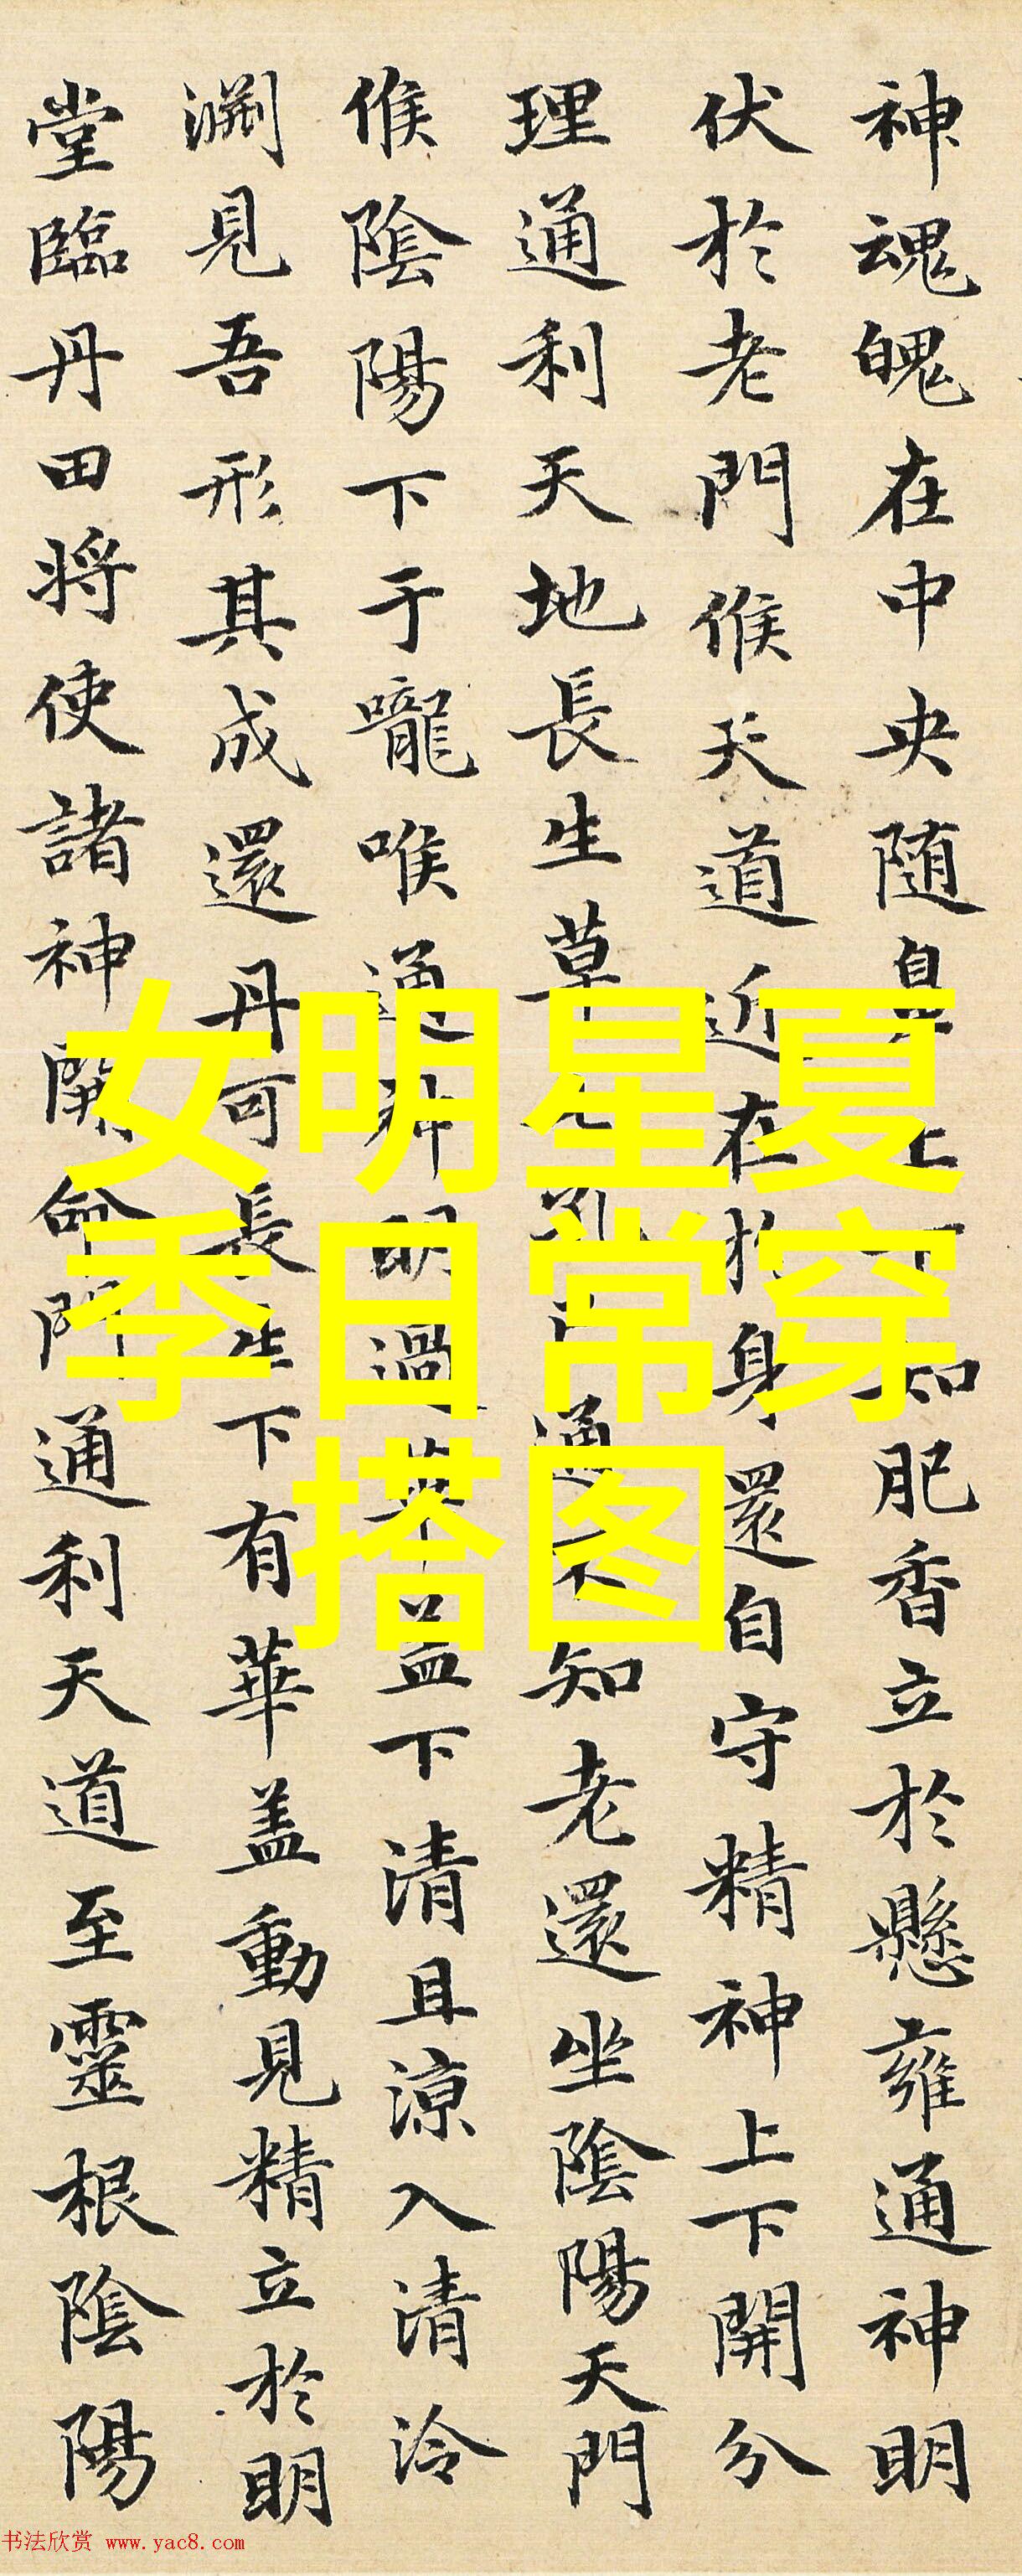 神魂魄在中央随鼻上下知肥香立於懸雍通神明
伏於老門候天道近在於身還自守精神上下開分
理通利天地長生草七孔已通不知老還坐陰陽天門
候陰陽下于嚨喉通神明過華盖下清且涼入清泠
渊見吾形其成還丹可長生下有華盖動見精立於明
堂臨丹田将使諸神開命門通利天道至靈根陰陽
女明星夏
季日常穿
搭图
书法欣赏 www.yac8.com